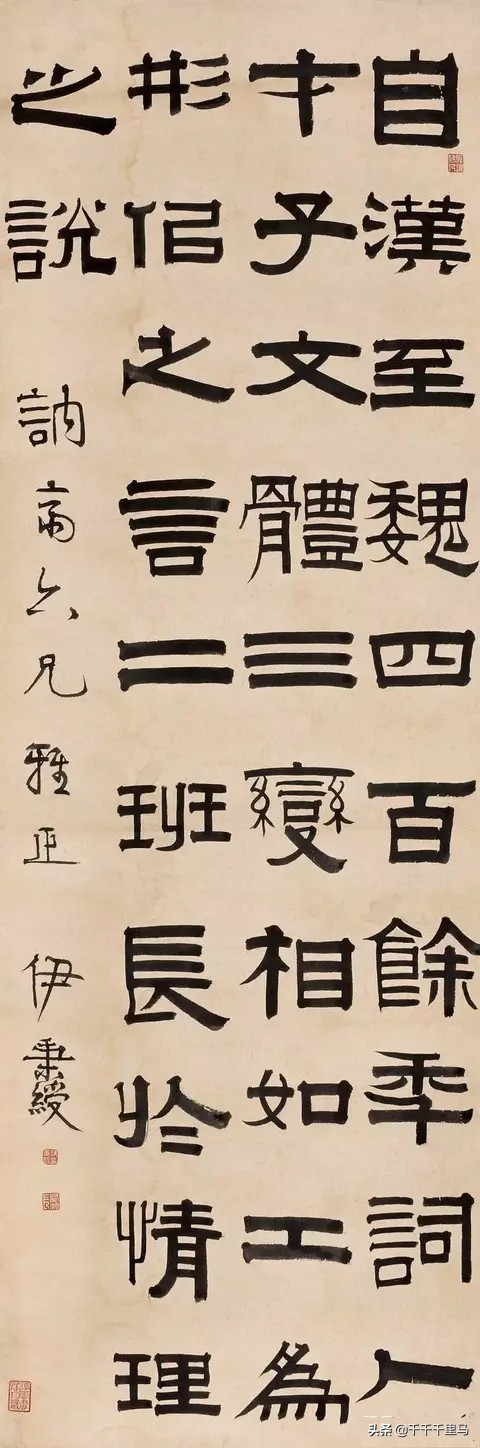 自漢至魏四百餘季詞人
才子文體三變相如工為
形佀之言二班長於情理
之說
訥齋六兄雅正 伊秉綬
头条@千千千里马